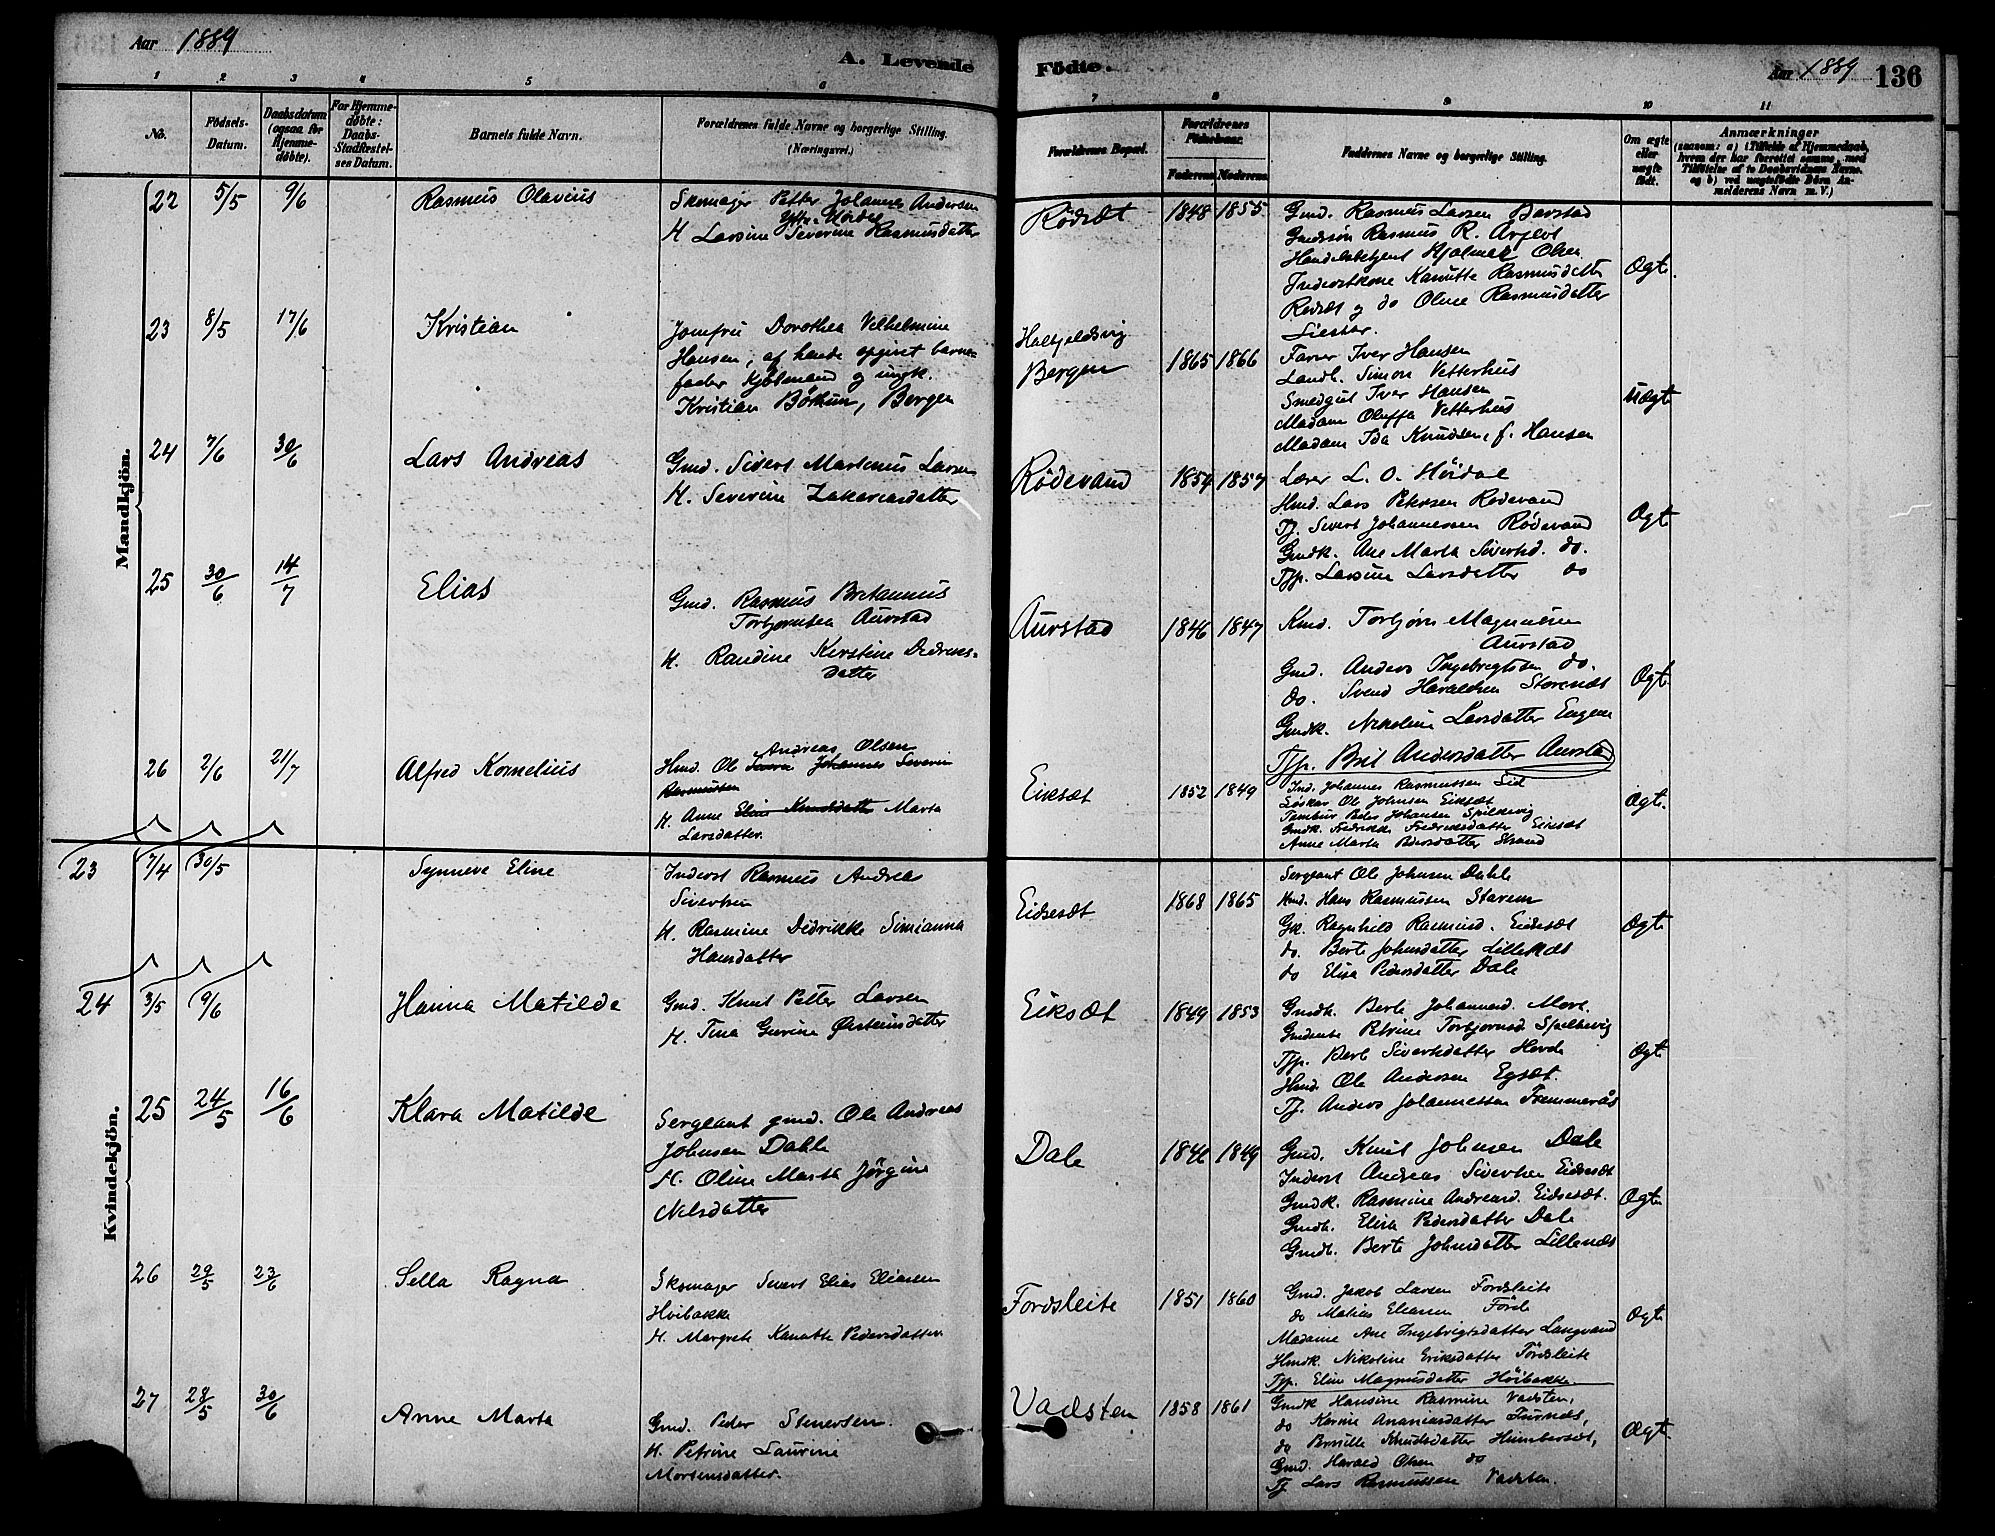 Aar 1889
A. Levende Födte.
Aar 1889
136
1 2 3 4 5 6 7 8 9 10 11
No.
Födsels-Datum.
Daabsdatum (ogsaa for Hjemme-døbte).
For Hjemme-døbte: Daabs-Stadfæstel-ses Datum.
Barnets fulde Navn.
Forældrenes fulde Navne og borgerlige Stilling.
(Næringsvei.)
Forældrenes Bopæl.
Forældrenes Födselsaar.
Faderens. Moderens.
Faddernes Navne og borgerlige Stilling.
Om ægte eller uægte født.
Anmærkninger
(saasom: a) i Tilfælde af Hjemmedaab, hvem der har forrettet samme, med Tilföielse af to Daabsvidners Navne, og b) ved uægtefødte Börn An-melderens Navn m. V.)
Mandkjön.
22 5/5 9/6 Rasmus Olavius
Skomager Petter Johannes Andersen
H. Larsine Severine Rasmusdatter
Rødsæt 1848 1855
Gmd. Rasmus Larsen Barstad
Gmdssøn Rasmus R.
Handelsbetjent Hjalmar Olsen
Inderstkone Kanutte Rasmusdatter
Rødsæt og do Oline Rasmusdatter
Ægt.
23 8/5 17/6 Kristian
Jomfru Dorothea Vilhelmine
Hansen, af hende opgivet barne-
fader Kjøbmand og ungk.
Kristian Böthun, Bergen
Bergen 1865 1866
Farver Iver Hansen
Landh. Simon Vetterhus
Smedgut Iver Hansen
Madam Oluffa Vetterhus
Madam Ida Knudsen, f. Hansen
Uægt
24 7/6 30/6 Lars Andreas
Gmd. Sivert Martinus Larsen
H. Severine Zakariasdatter
Rødevand 1854 1857
Lærer L. O. Höidal
Hmd. Lars Petersen Rødevand
Tj. Sivert Johannessen Rødevand
Gmdk. Ane Marta Sivertsd. do.
Tjp. Larsine Larsdatter do
Ægt
25 30/6 14/7 Elias
Gmd. Rasmus Bretannus
Torbjørnsen Aurstad
H. Randine Kirstine Didriks-
datter
Aurstad 1846 1847
Kmd. Torbjørn Magnussen
Aurstad
Gmd. Anders Ingebrigtsen do.
do. Svend Haraldsen Storenæs
Gmdk. Nikoline Larsdatter
Tjp. Brit Andersdatter Aurstad
Ægt
26 2/6 21/7 Alfred Kornelius
Andreas Olsen
Hmd. Ole Johannes Severin
Rasmussen
H. Anne Eline Knudsdatter Marta
Larsdatter.
Eiksæt 1852 1849
Ind. Johannes Rasmussen Lid
Løskar Ole Johnsen Eiksæt
Tambur Peder Johansen Spilkevig
Gmdk. Fredrikke Fredriksdatter Eiksæt
Anne Marta Persdatter Strand
Ægt.
Kvindekjön.
23 7/4 30/5 Synneve Eline
Inderst Rasmus Andreas
Sivertsen
H. Rasmine Didrikke Simianna
Hansdatter
Eidsesæt 1868 1865
Sergeant Ole Johnsen Dahle
Kmd. Hans Rasmussen Starem
Gk. Ragnhild Rasmusd. Eidesæt
do. Berte Johnsdatter
do Elisa Pedersdatter Dale
Ægt
24 3/5 9/6 Hanna Matilde
Gmd. Knut Petter Larsen
H. Tina Gurine Østeinsdatter
Eiksæt 1849 1853
Gmdk. Berte Johannesd. Mork
Gmdenke Petrine Torbjørnsd Spilkevig
Tjp. Berte Sivertsdatter Hovde
Hmd. Ole Andersen Egsæt.
Tj. Anders Johannessen
Ægt
25 24/5 16/6 Klara Matilde
Sergeant gmd. Ole Andreas
Johnsen Dahle
H. Oline Marta Jørgine
Nilsdatter
Dale 1849
Gmd. Knut Johnsen Dale
Inderst Andreas Sivertsen Eidesæt
Gmdk. Rasmine Andreasd. Eidsesæt.
Gmdk. Elisa Pedersdatter Dale
Gmdk. Berte Johnsdatter Lillenæs
Ægt
26 29/5 23/6 Sella Ragna
Skomager Sivert Elias Eliassen
Höibakke
H. Margrete Kanutte Pedersdatter
Fordsleite 1851 1860
Gmd. Jakob Larsen Fordsleite
do Matias Eliassen Förde
Madame Ane Ingebrigtsdatter Langvand
Hmdk. Nikoline Eriksdatter Fördsleite
Tjp. Elin Magnusdatter Höibakke.
Ægt
27 28/5 30/6 Anne Marta
Gmd. Peder Stenersen.
H. Petrine Laurine
Mortensdatter.
Vadsten 1858 1861
Gmdk Hansine Rasmine Vadsten,
do Karine Ananiasdatter Furnæs,
do Pernille Knudsdatter Humborsæt,
Gmd. Harald Olsen do
Tj Lars Rasmussen Vadsten.
Ægt